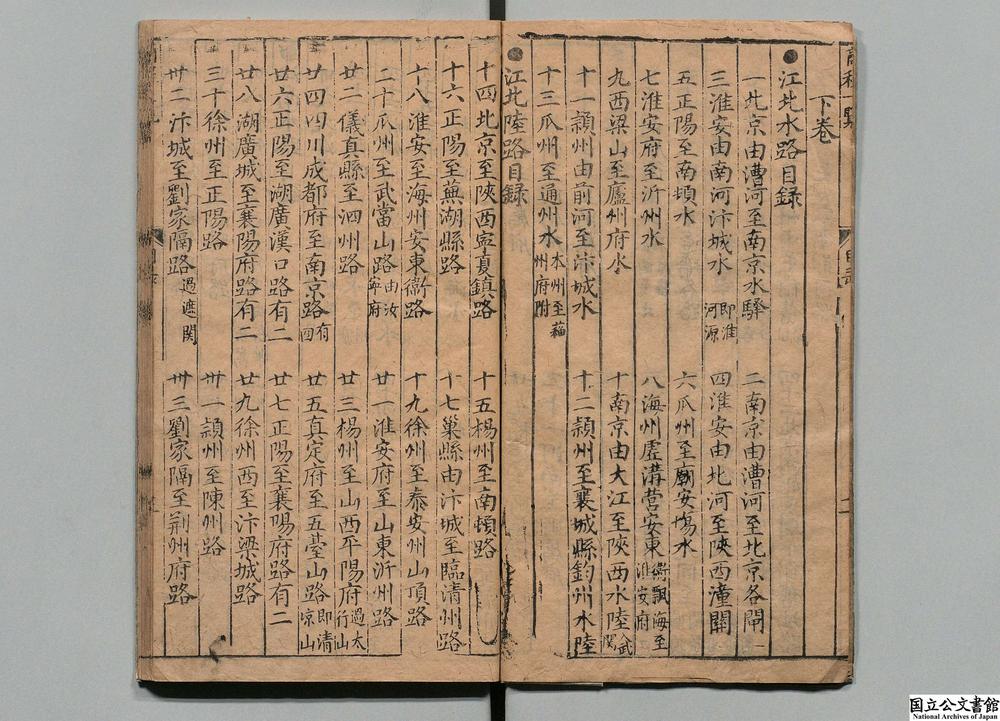 下卷
●江北水路目錄
一北京由漕河至南京水驛
二南京由漕河至北京各閘
三淮安由南河汴城水即淮河源
四淮安由北河至陝西潼關
五正陽至南頓水
六瓜州至廟安塲水
七淮安府至沂州水
八海州虛溝营安東衛飄海至淮安府
九西梁山至廬州府水
十南京由大江至陝西水陸入武関
十一頴州由前河至汴城水
十二頴州至襄城縣鈞州水陸
十三瓜州至通州水本州至蘓州府附
●江北陸路目録
十四北京至陝西寧夏鎮路
十五楊州至南頓路
十六正陽至蕪湖縣路
十七巢縣由汴城至臨清州路
十八淮安至海州安東衛路
十九徐州至泰安州山頂路
二十瓜州至武當山路由汝寧府
廿一淮安府至山東沂州路
廿二儀真縣至泗州路
廿三楊州至山西平陽府過太行山
廿四四川成都府至南京路有四
廿五真定府至五臺山路即清凉山
廿六正陽至湖廣漢口路有二
廿七正陽至襄陽府路有二
廿八湖廣城至襄陽府路有二
廿九徐州西至汴梁城路
三十徐州至正陽路
卅一頴州至陳州路
卅二汴城至劉家隔路過遮関
卅三劉家隔至荆州府路
国立公文書館
National Archives of Japan